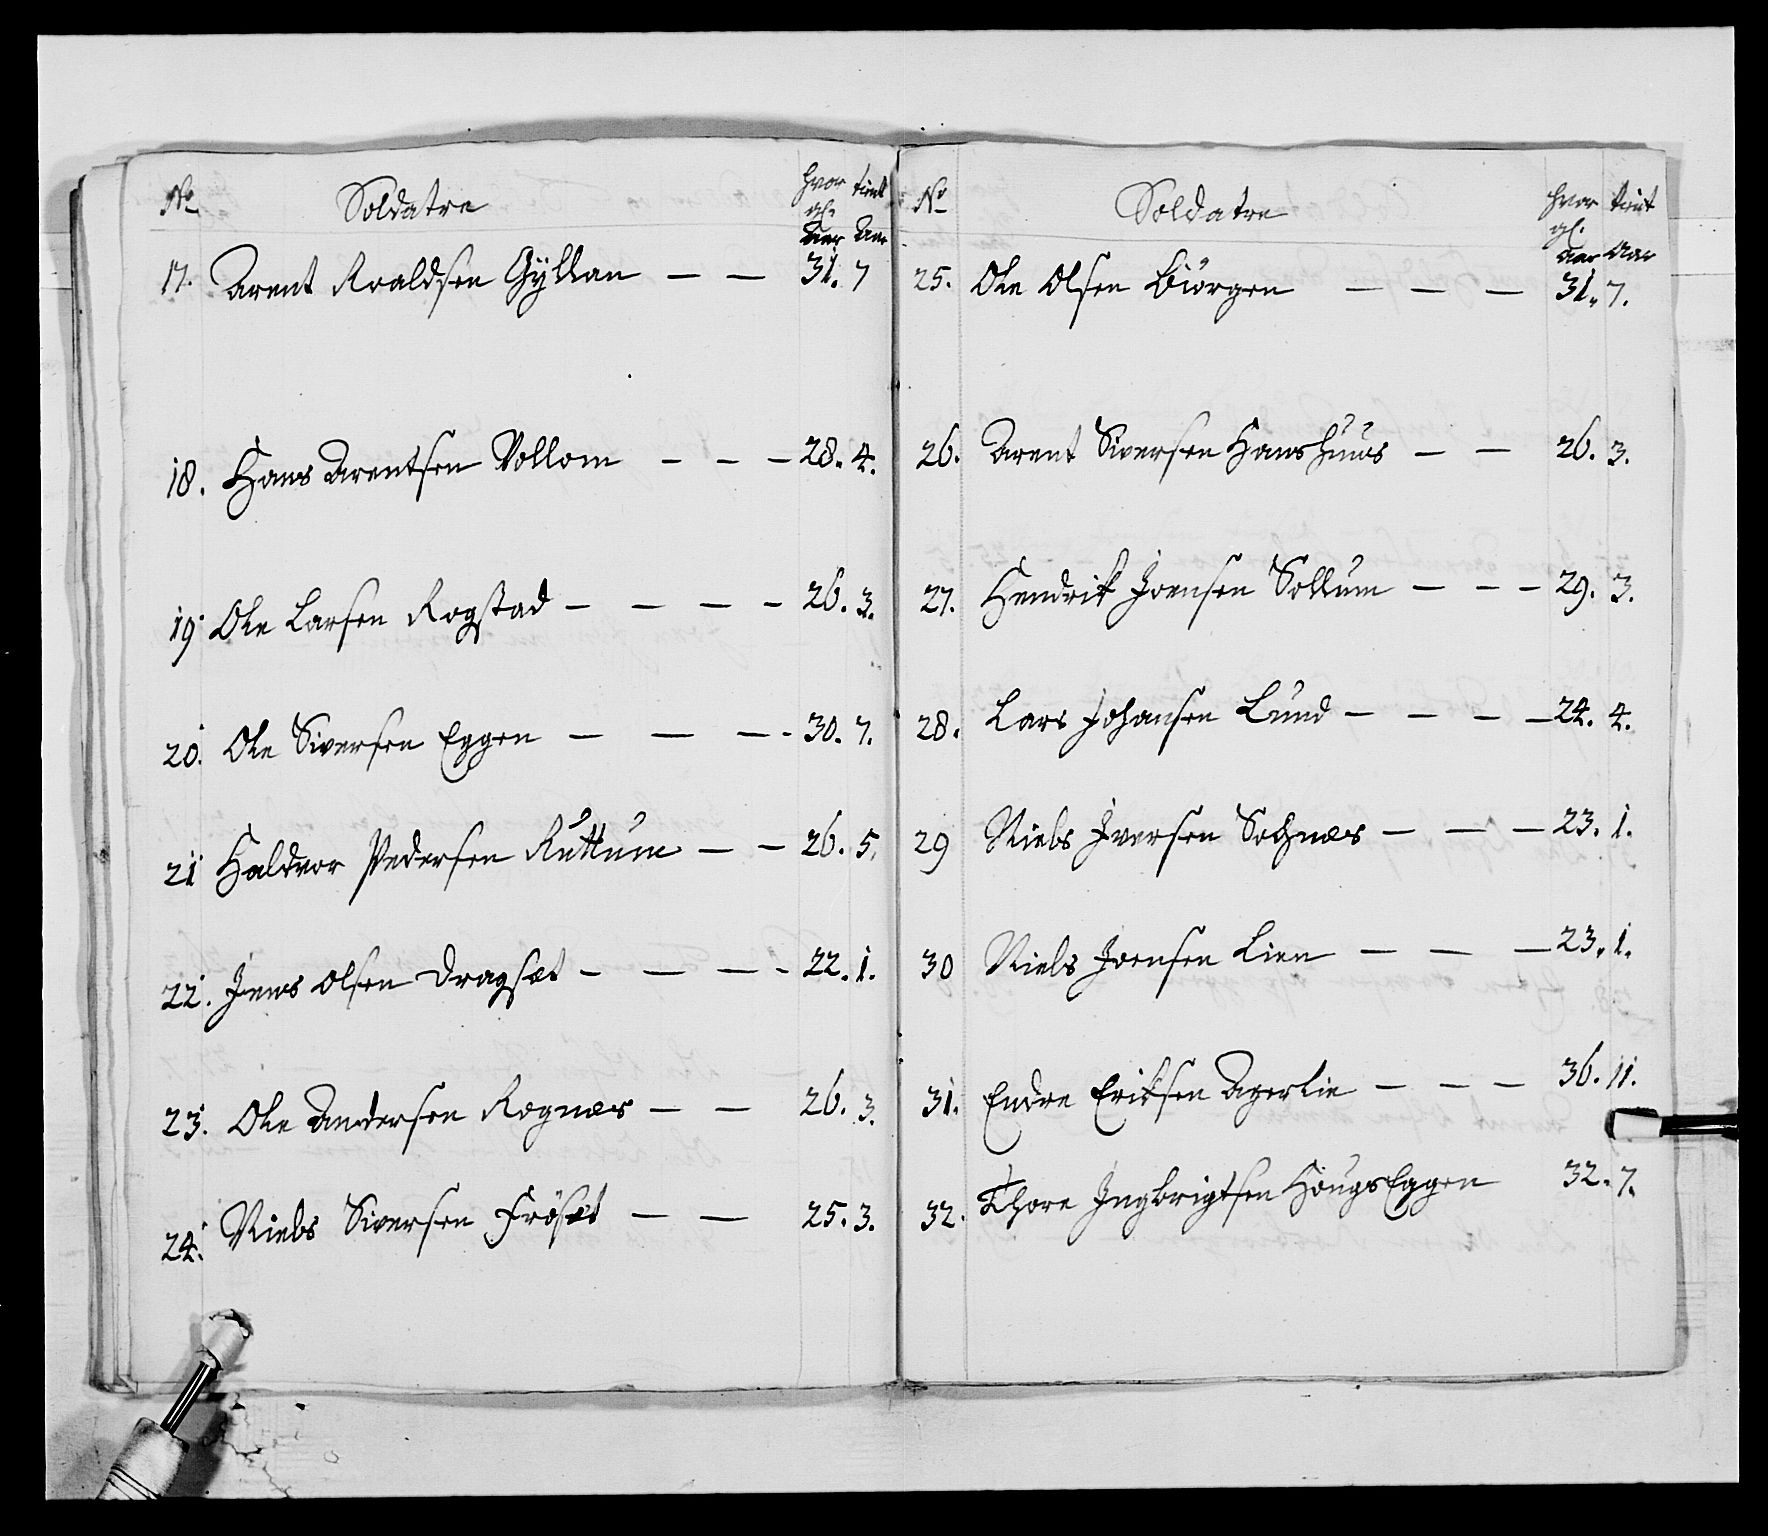 No Soldatre hvor gl. Aar tient Aar
17. Arent Roaldsen Gyllan — — 31. 7
18. Hans Arentsen Vollom — — — 28. 4.
19. Ole Larsen Rogstad — — — — 26. 3.
20. Ole Siversen Eggen — — — - 30. 7.
21 Haldvor Pedersen Ruttum — — 26. 5.
22. Jens Olsen Dragsæt — — — - 22. 1.
23. Ole Andersen Rognæs — — 26. 3.
24. Niels Siversen Frösæt — — 25. 3.
No Soldatre hvor gl. Aar tient Aar
25. Ole Olsen Biörgen — — — 31. 7.
26. Arent Siversen Hanshuus — — 26. 3.
27. Hendrik Joensen Sollum — — — 29. 3.
28. Lars Johansen Lund — — — — 24. 4.
29 Niels Iversen Sochnæs — — — 23. 1.
30 Niels Joensen Lien — — — 23. 1.
31. Endre Eriksen Agerlie — — — 36. 11.
32. Thore Ingbrigtsen HougsEggen 32. 7.